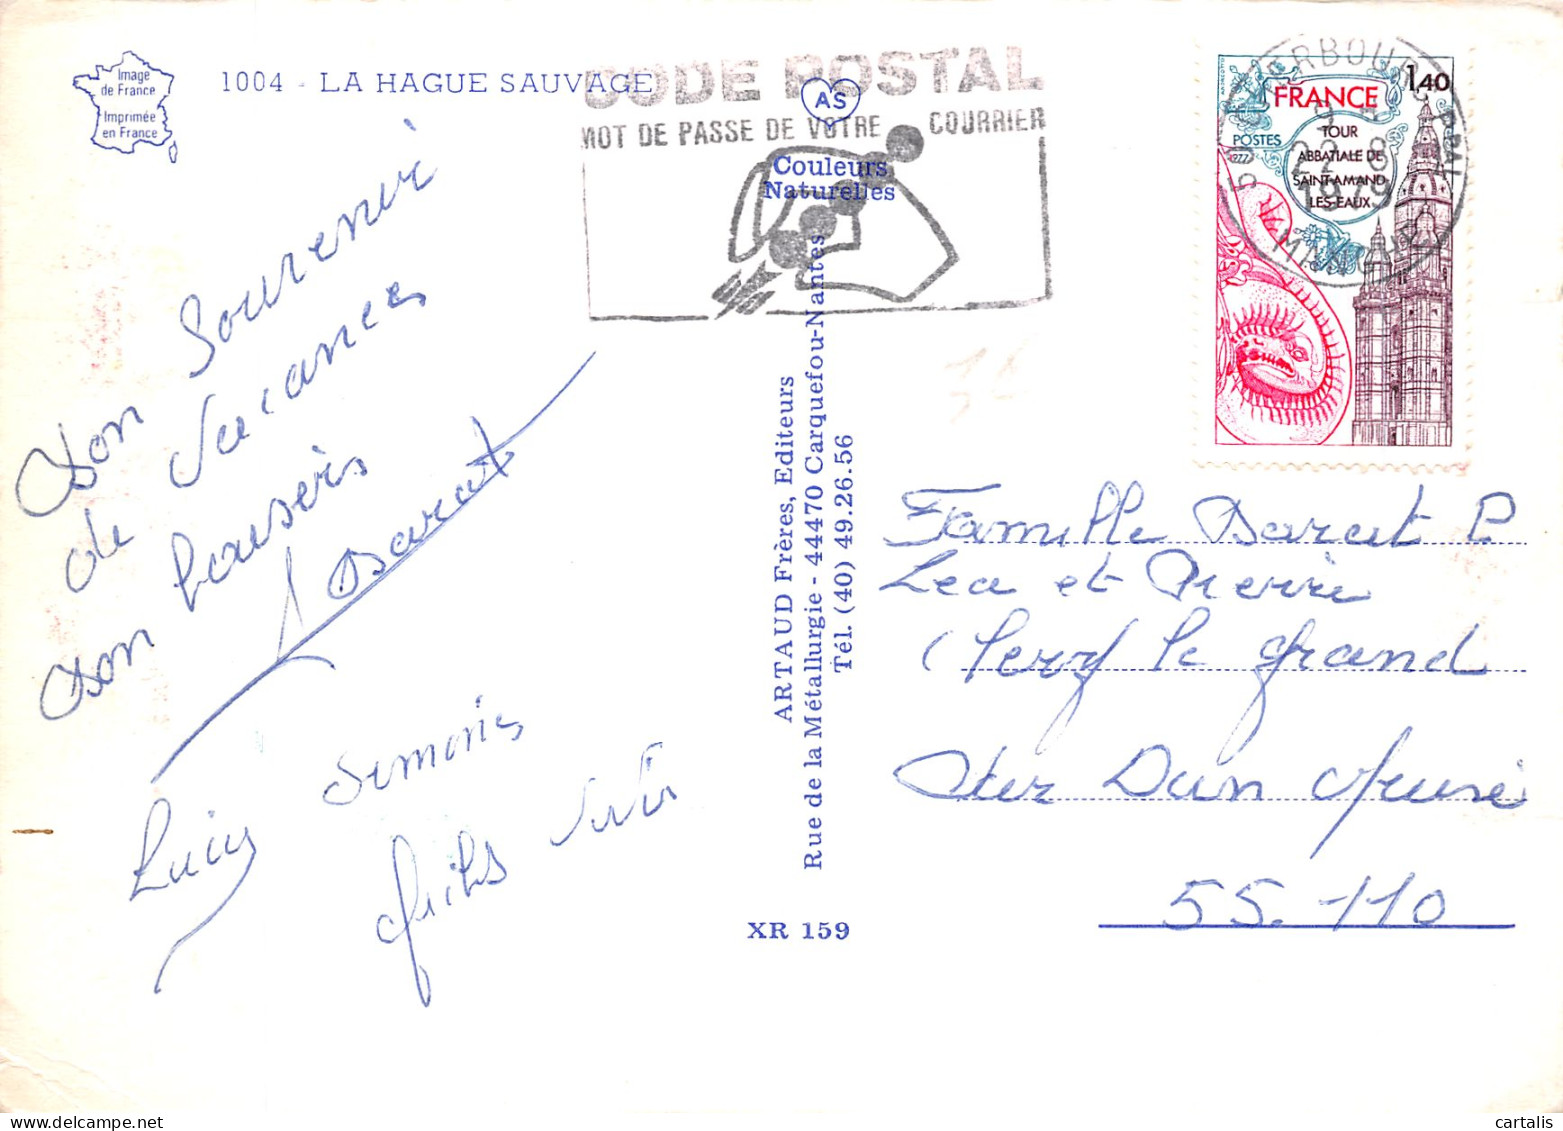 Image
de France
Imprimée
en France
1004 - LA HAGUE SAUVAGE
CODE POSTAL
MOT DE PASSE DE VOTRE COURRIER
AS
Couleurs
Naturelles
1,40
FRANCE
POSTES
1977
TOUR
ABBATIALE DE
SAINT-AMAND-
LES-EAUX
22-8
1979
MANCHE
Bon Souvenir
de Vacances
Bon baisers
L Darcut
Simone
ARTAUD Frères, Editeurs
Rue de la Métallurgie - 44470 Carquefou-Nantes
Tél. (40) 49.26.56
XR 159
Famille Darcut P
Lea et Pierre
Clery le grand
Dun Meuse
55.110
cartalis